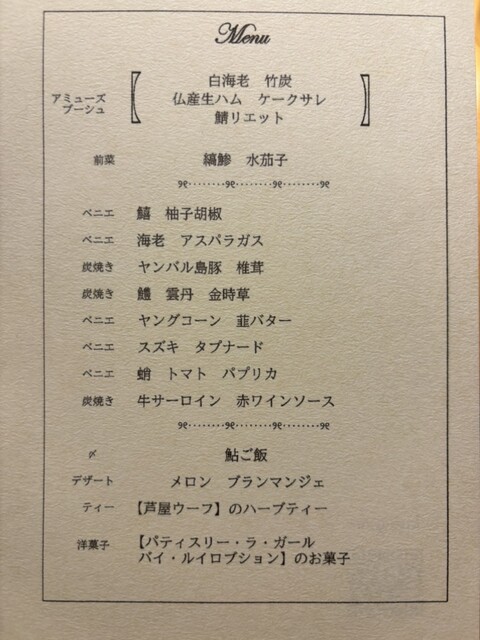 Menu
白海老　竹炭
アミューズ ブーシュ　仏産生ハム　ケークサレ
鯖リエット
前菜　縞鯵　水茄子
ベニエ　鱚　柚子胡椒
ベニエ　海老　アスパラガス
炭焼き　ヤンバル島豚　椎茸
炭焼き　鱧　雲丹　金時草
ベニエ　ヤングコーン　韮バター
ベニエ　スズキ　タプナード
ベニエ　蛸　トマト　パプリカ
炭焼き　牛サーロイン　赤ワインソース
〆　鮎ご飯
デザート　メロン　ブランマンジェ
ティー　【芦屋ウーフ】のハーブティー
洋菓子　【パティスリー・ラ・ガール
バイ・ルイロブション】のお菓子